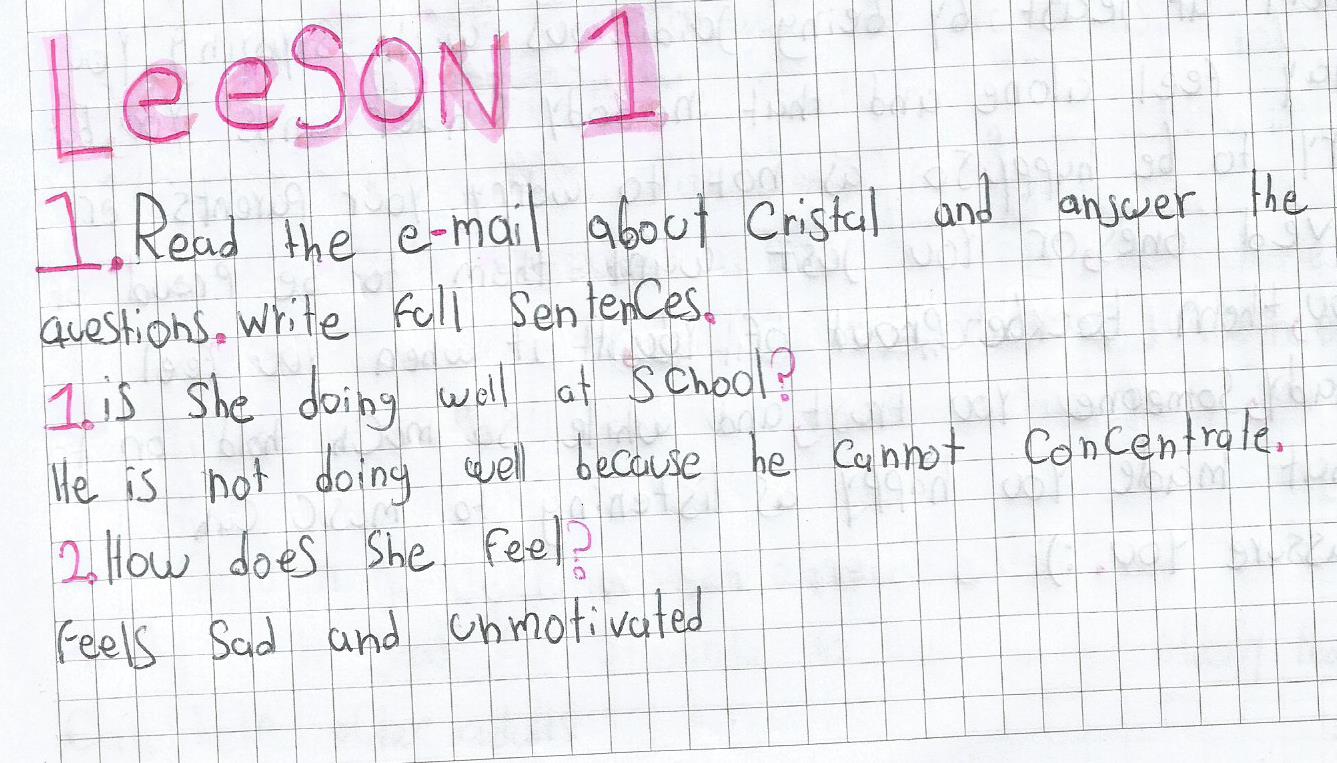 LeeSON 1
1. Read the e-mail about Cristal and answer the
questions. write full Sentences.
1. is she doing well at School?
He is not doing well because he cannot Concentrate.
2. How does She feel?
Feels Sad and unmotivated